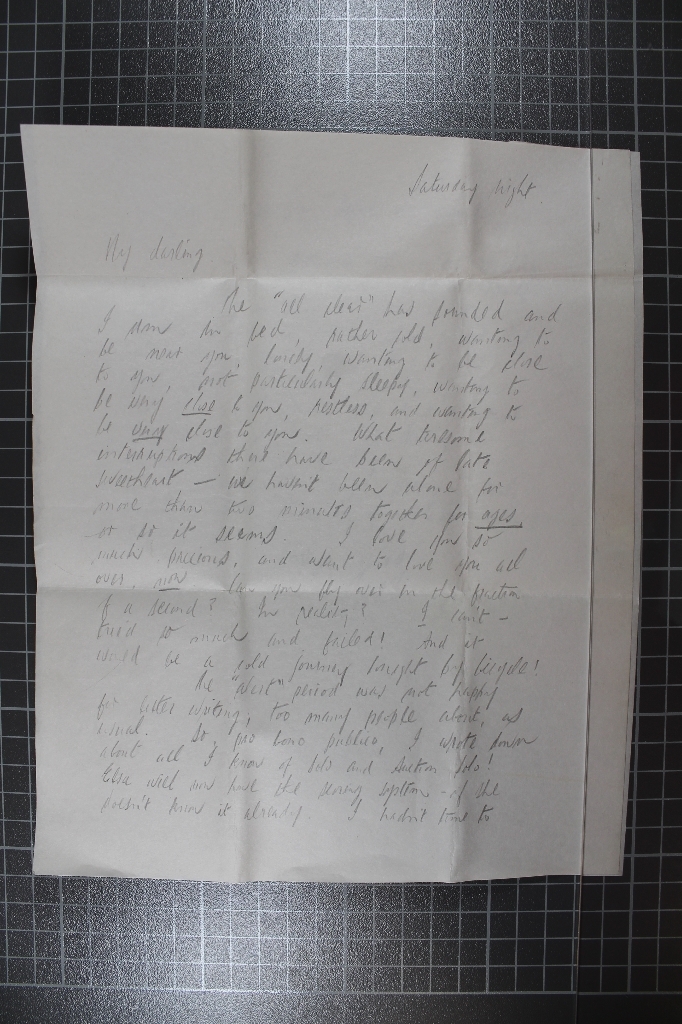 Saturday night.
My darling
The "all clear" has sounded and
I am in bed, rather cold, wanting to
be near you, lonely, wanting to be close
to you, not particularly sleepy, wanting to
be very close to you, restless, and wanting to
be very close to you. What tiresome
interruptions there have been of late
sweetheart — we haven't been alone for
more than two minutes together for ages,
or so it seems. I love you so
much precious, and want to love you all
over, now. Can you fly over in the fraction
of a second? In reality? I can't -
tried so much and failed! And it
would be a cold journey tonight by bicycle!
The "alert" period was not happy
for letter writing, too many people about, as
usual. So, pro bono publico, I wrote down
about all I know of Solo and Auction Solo!
Else will now have the scoring system - if she
doesn't know it already. I hadn't time to